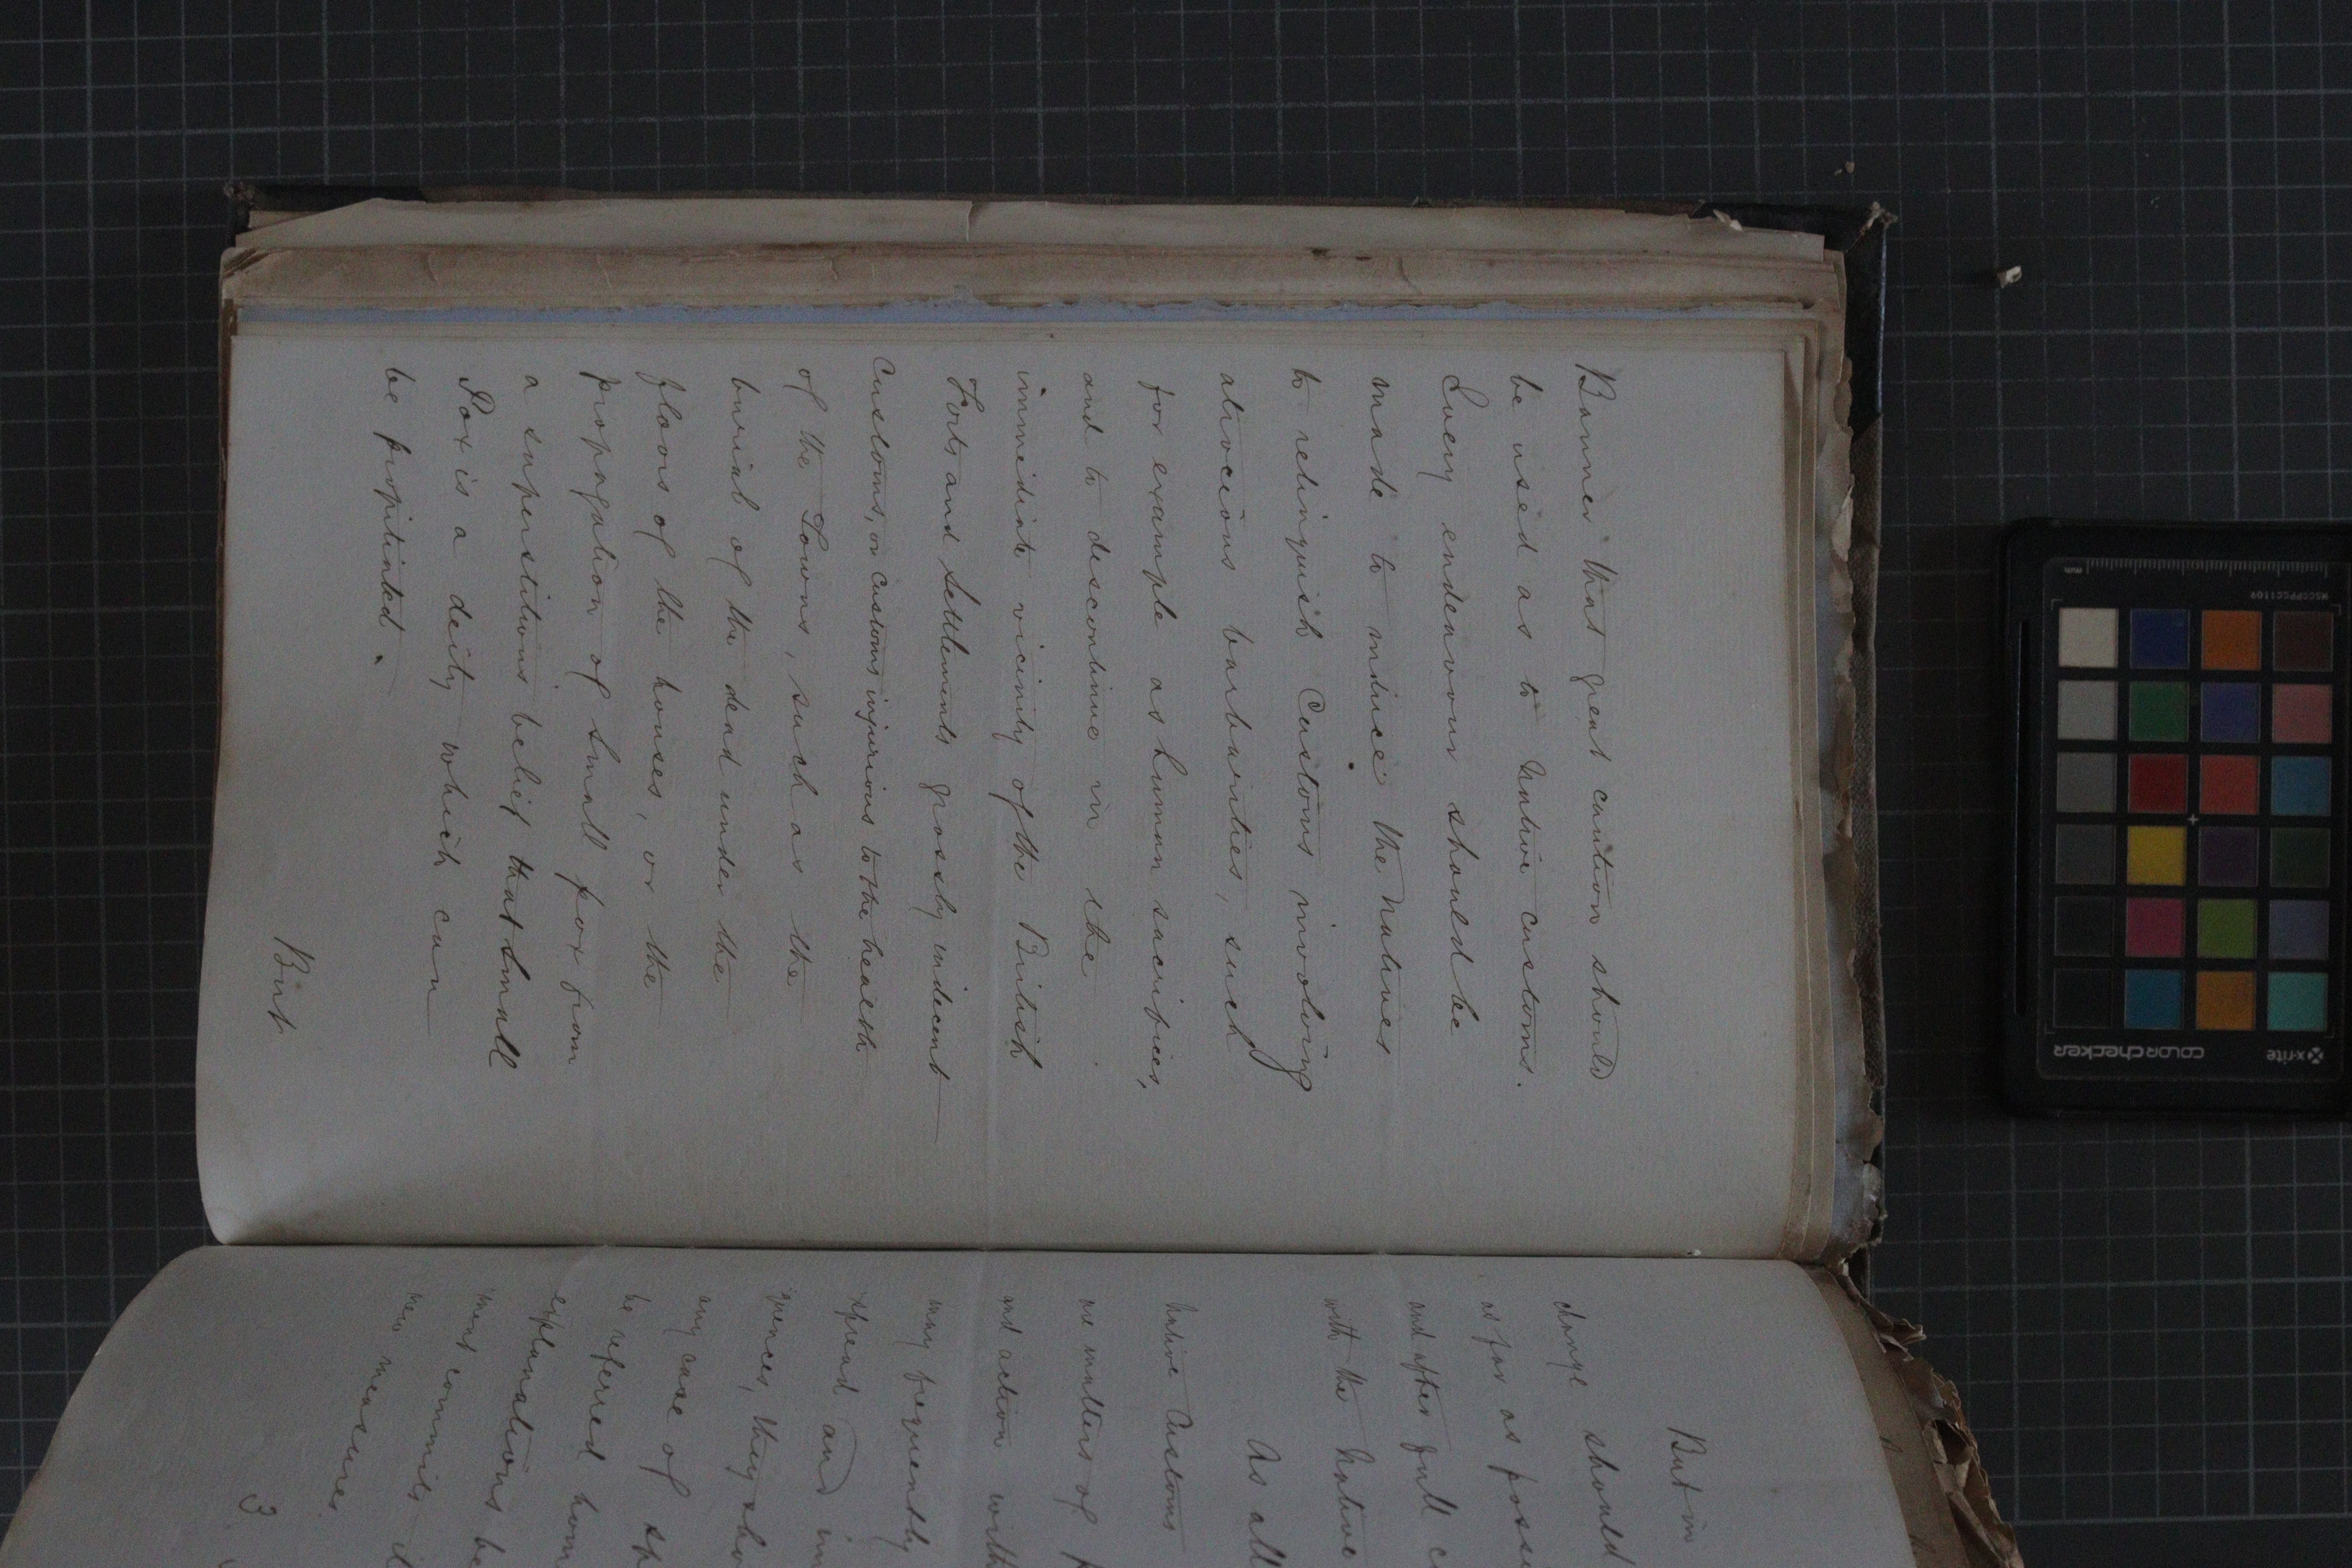 Banner that great caution should
be used as to Native customs.
Every endeavour should be
made to induce the Natives
to relinquish Customs involving
atrocious barbarities, such
for example as human sacrifices,
and to discontinue in the
immediate vicinity of the British
Forts and Settlements grossly indecent
Customs, or customs injurious to the health
of the Towns, such as the
burial of the dead under the
floors of the houses, or the
propagation of small pox from
a superstitious belief that Small
Pox is a deity which can
be propitiated.
But
But in
change should
as far as
and after full
with the Native
As all
Native Customs
are matters of
and action with
may frequently
spread and
quences, they
any case of
be referred home
explanations
ment commits
new measures
3
mm
MSCCPPCC1109
colorchecker
x-rite